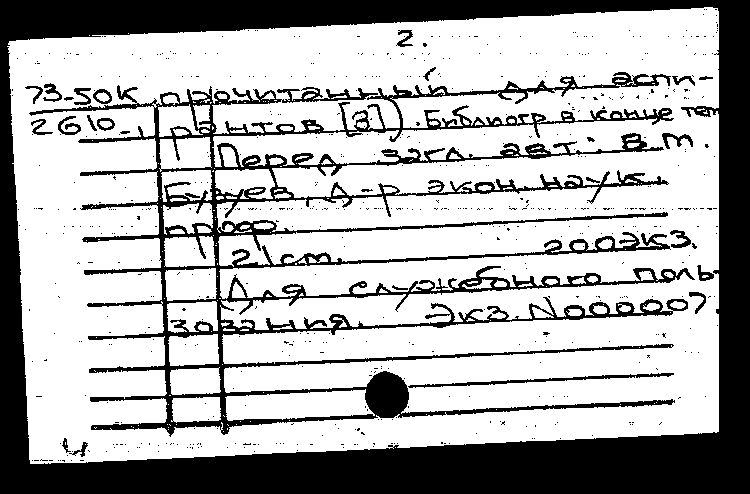 2.
73-50К прочитанный для аспи-
2610-1 рантов [3]). Библиогр в конце тем
Перед загл. авт.: В.Т.
Бузуев, д-р экон. наук.
проф.
21 cm. 200 экз.
Для служебного поль-
зования. Экз. N000007.
4